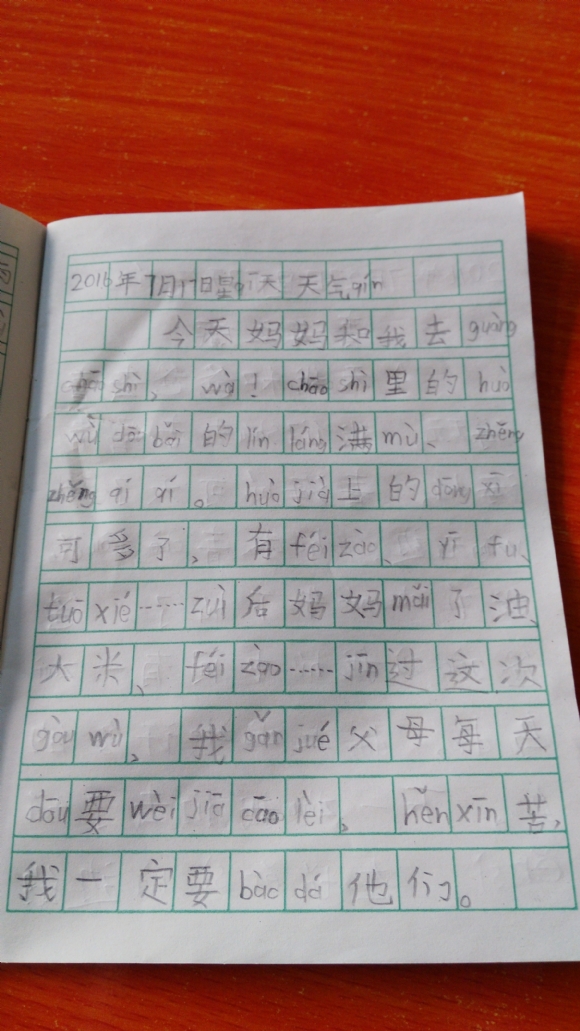 2016年7月17日星qī天 天气qín
今天妈妈和我去guàng
chāo shì, wà! chāo shì里的huò
wù dō bǎi的lín láng满mù、zhěng
zhěng qí xí。huò jià上的dōng xī
可多了,有féi zào、yī fu、
tuō xié……zuì后妈妈mǎi了油、
大米、féi zào……jīn过这次
gòu wù,我gǎn jué父母每天
dōu要wèi jiā cāo lèi,hěn xīn苦,
我一定要bào dá他们。